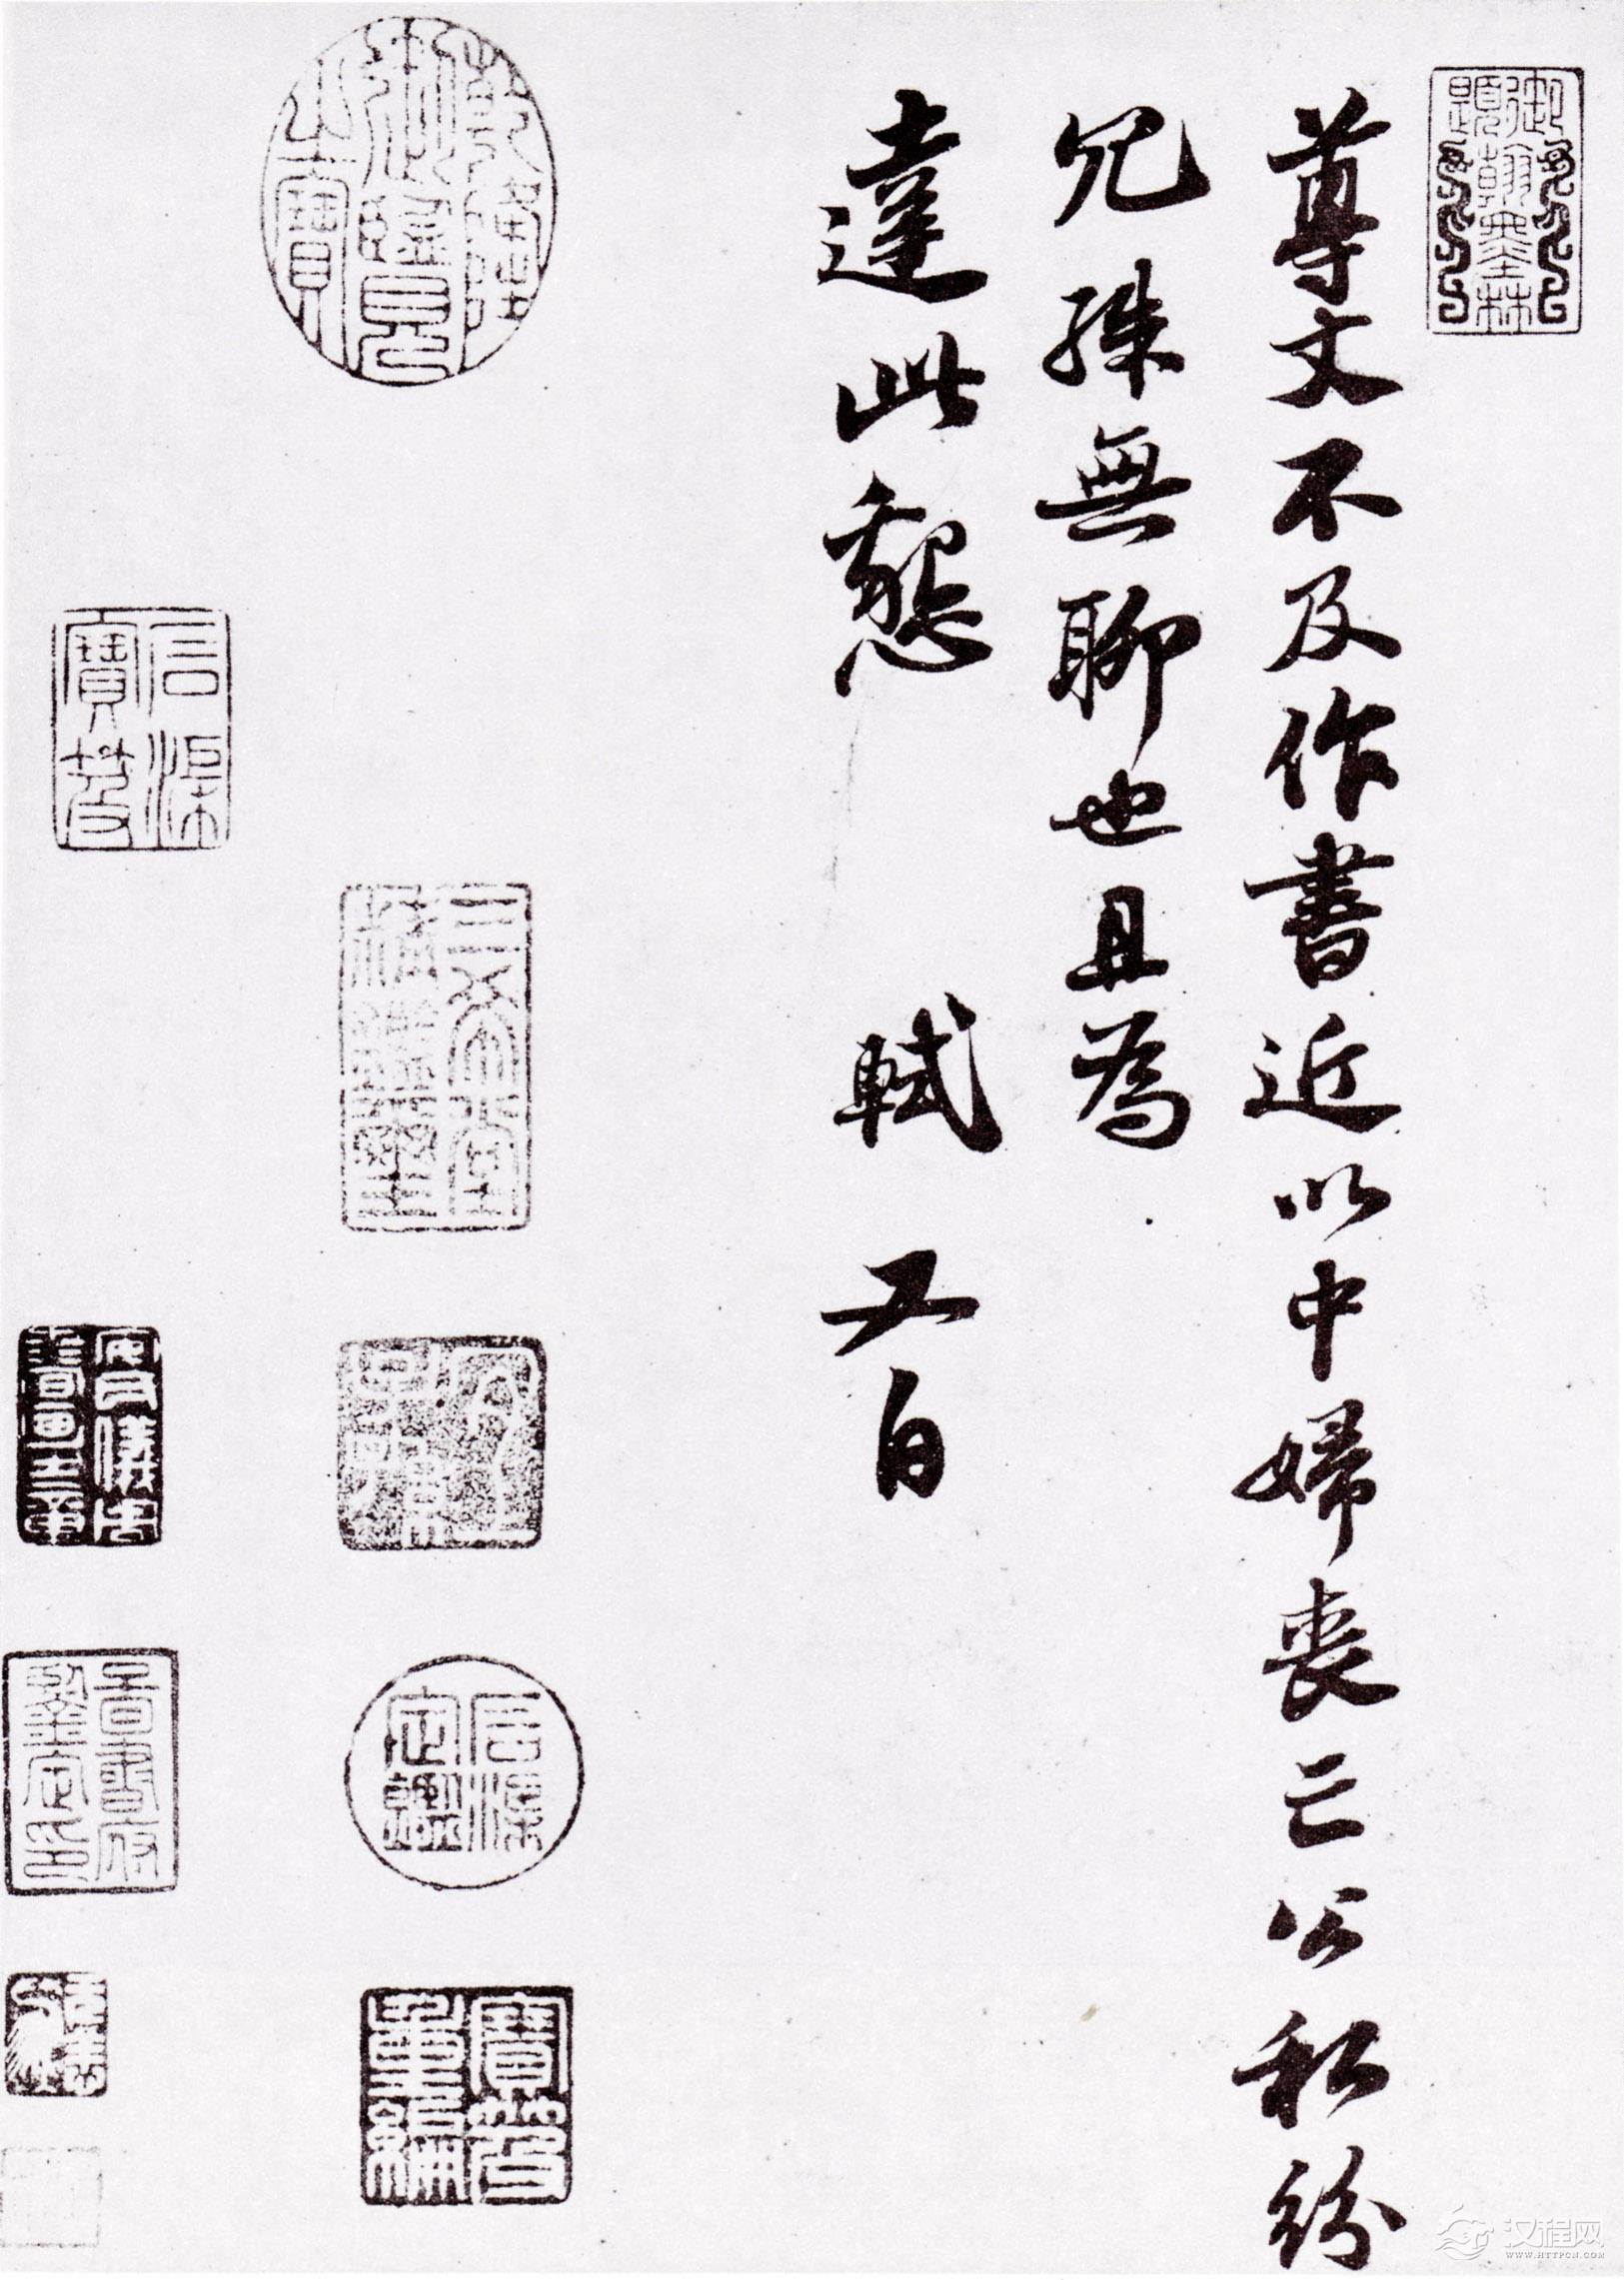 御題翰墨林
尊丈不及作書近以中婦喪亡公私紛
冗殊無聊也且為
達此懇 軾又白
乾隆御覽之寶
三希堂精鑑璽
宜子孫
石渠定鑑
寶笈重編
石渠寶笈
安氏儀周書畫之章
汉程网
WWW.HTTPCN.COM